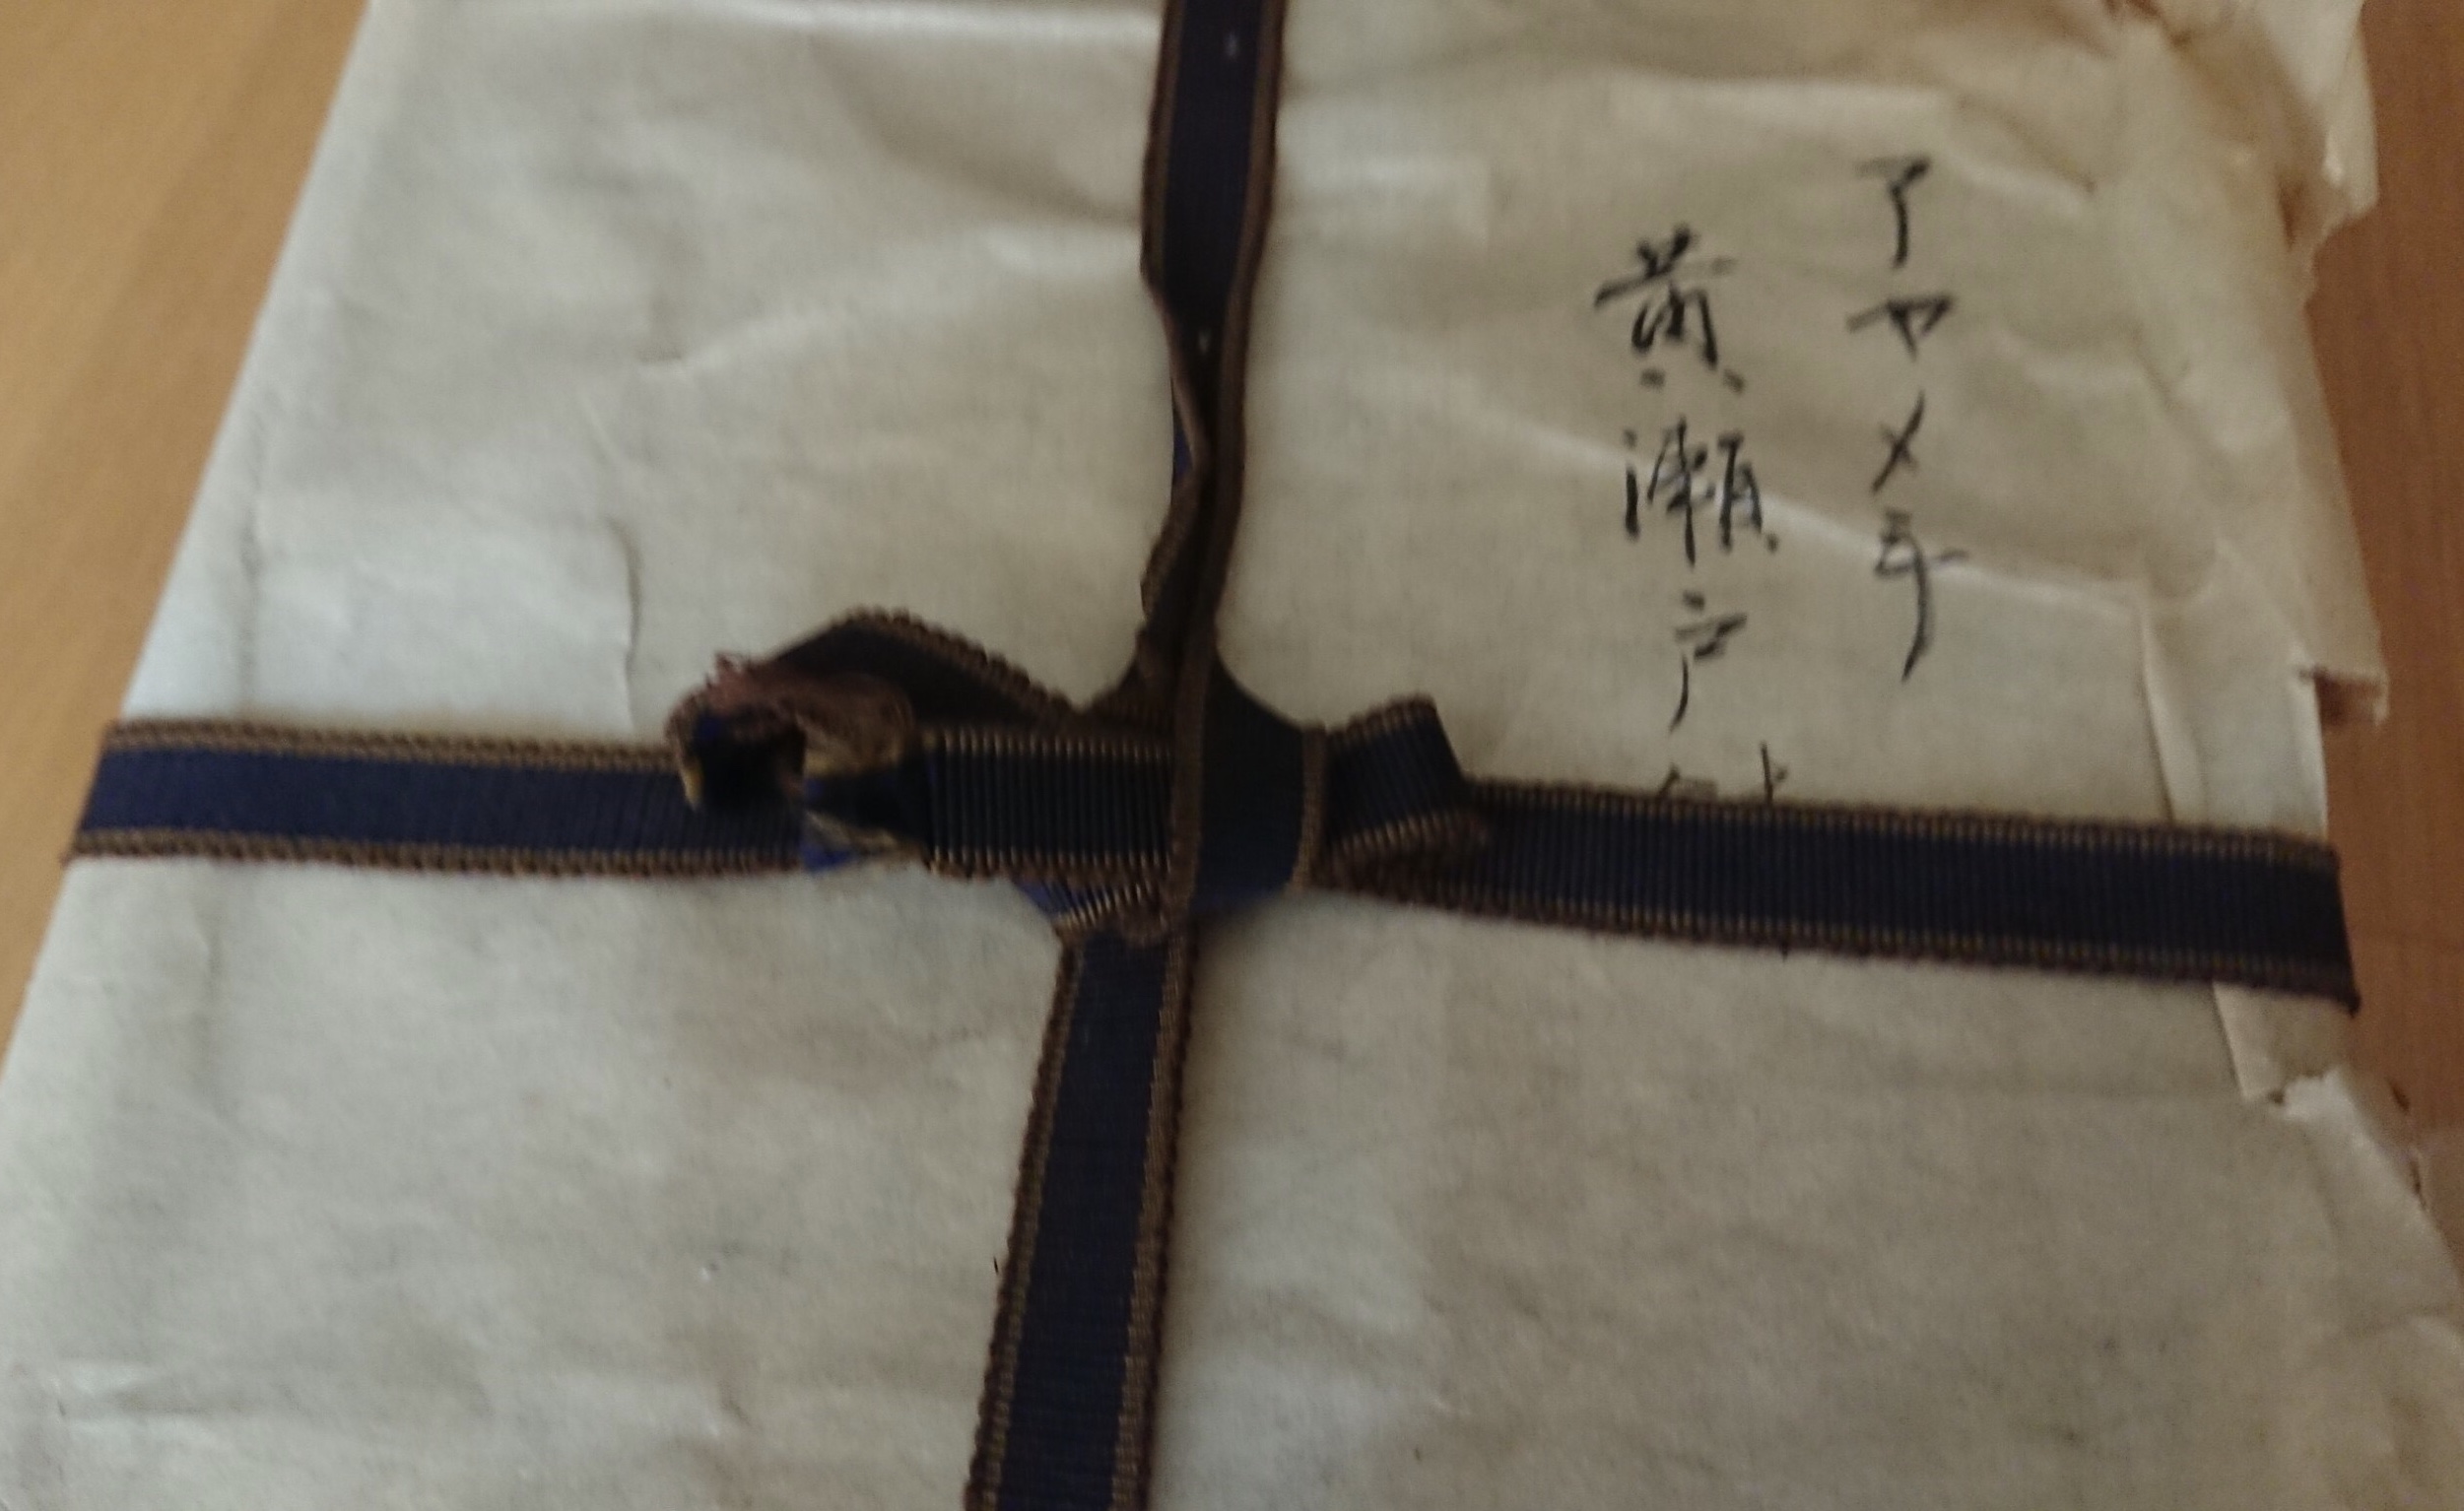 アヤメ手
黄瀬戸